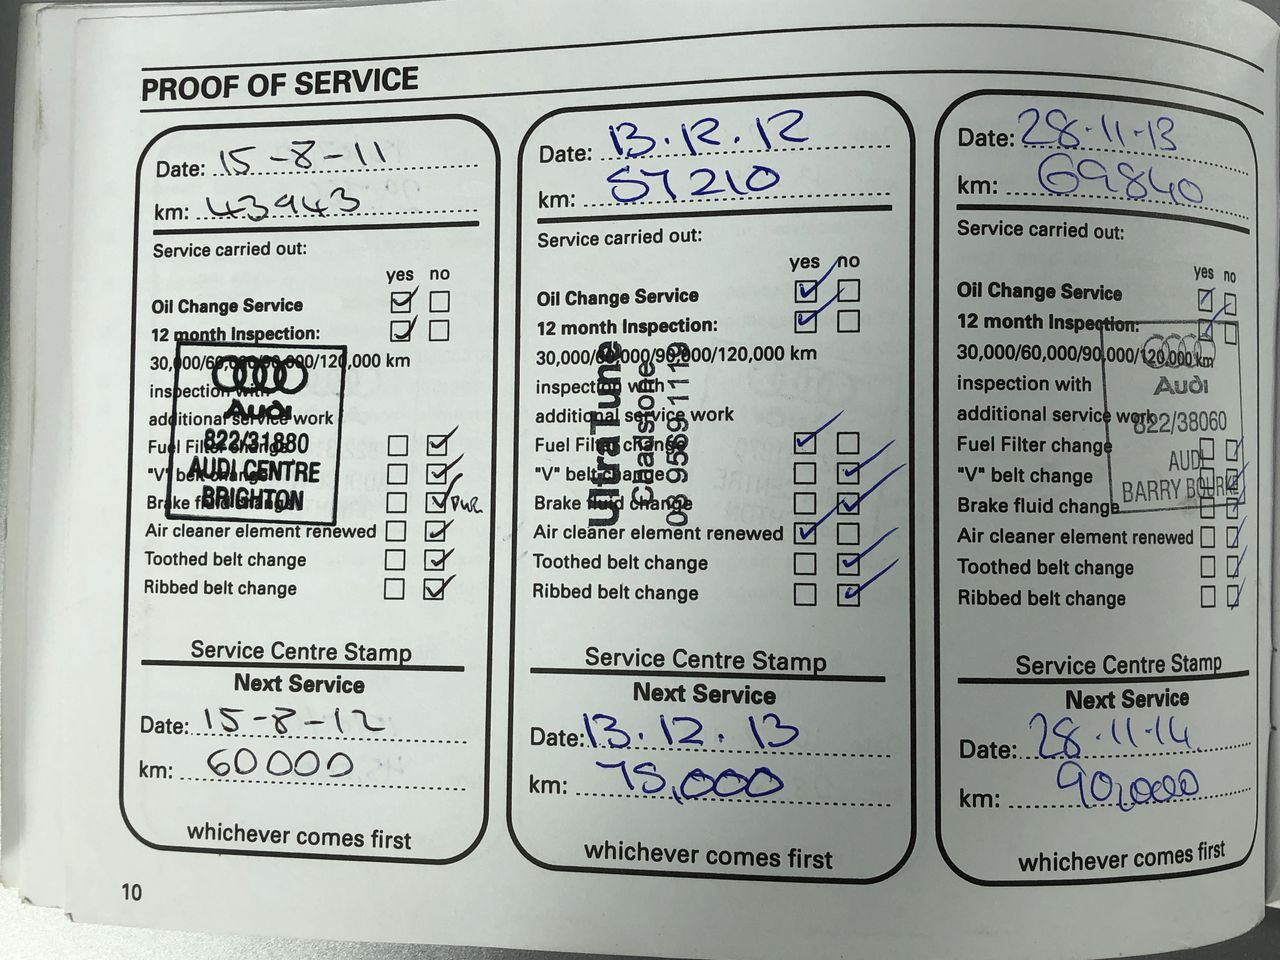 PROOF OF SERVICE
Date: 15-8-11
km: 43943
Service carried out:
yes no
Oil Change Service
12 month Inspection:
30,000/60,000/90,000/120,000 km
inspection with
additional service work
Fuel Filter change
"V" belt change
Brake fluid change
Air cleaner element renewed
Toothed belt change
Ribbed belt change
Audi
822/31880
AUDI CENTRE
BRIGHTON
Service Centre Stamp
Next Service
Date: 15-8-12
km: 60000
whichever comes first
Date: 13.12.12
km: 57210
Service carried out:
yes no
Oil Change Service
12 month Inspection:
30,000/60,000/90,000/120,000 km
inspection with
additional service work
Fuel Filter change
"V" belt change
Brake fluid change
Air cleaner element renewed
Toothed belt change
Ribbed belt change
Ultra Tune
Chadstone
03 9569 1119
Service Centre Stamp
Next Service
Date: 13.12.13
km: 75,000
whichever comes first
Date: 28.11.13
km: 69840
Service carried out:
yes no
Oil Change Service
12 month Inspection:
30,000/60,000/90,000/120,000 km
inspection with
additional service work
Fuel Filter change
"V" belt change
Brake fluid change
Air cleaner element renewed
Toothed belt change
Ribbed belt change
Audi
822/38060
AUDI
BARRY BOURKE
Service Centre Stamp
Next Service
Date: 28.11.14
km: 90,000
whichever comes first
10